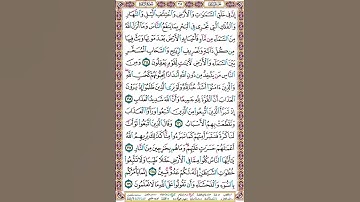 إِنَّ فِى خَلْقِ ٱلسَّمَٰوَٰتِ وَٱلْأَرْضِ وَٱخْتِلَٰفِ ٱلَّيْلِ وَٱلنَّهَارِ
وَٱلْفُلْكِ ٱلَّتِى تَجْرِى فِى ٱلْبَحْرِ بِمَا يَنفَعُ ٱلنَّاسَ وَمَآ أَنزَلَ ٱللَّهُ
مِنَ ٱلسَّمَآءِ مِن مَّآءٍ فَأَحْيَا بِهِ ٱلْأَرْضَ بَعْدَ مَوْتِهَا وَبَثَّ فِيهَا
مِن كُلِّ دَآبَّةٍ وَتَصْرِيفِ ٱلرِّيَٰحِ وَٱلسَّحَابِ ٱلْمُسَخَّرِ
بَيْنَ ٱلسَّمَآءِ وَٱلْأَرْضِ لَءَايَٰتٍ لِّقَوْمٍ يَعْقِلُونَ وَمِنَ
ٱلنَّاسِ مَن يَتَّخِذُ مِن دُونِ ٱللَّهِ أَندَادًا يُحِبُّونَهُمْ كَحُبِّ ٱللَّهِ
وَٱلَّذِينَ ءَامَنُوٓا۟ أَشَدُّ حُبًّا لِّلَّهِ وَلَوْ يَرَى ٱلَّذِينَ ظَلَمُوٓا۟ إِذْ يَرَوْنَ
ٱلْعَذَابَ أَنَّ ٱلْقُوَّةَ لِلَّهِ جَمِيعًا وَأَنَّ ٱللَّهَ شَدِيدُ ٱلْعَذَابِ
إِذْ تَبَرَّأَ ٱلَّذِينَ ٱتُّبِعُوا۟ مِنَ ٱلَّذِينَ ٱتَّبَعُوا۟ وَرَأَوُا۟ ٱلْعَذَابَ
وَتَقَطَّعَتْ بِهِمُ ٱلْأَسْبَابُ وَقَالَ ٱلَّذِينَ ٱتَّبَعُوا۟ لَوْ أَنَّ
لَنَا كَرَّةً فَنَتَبَرَّأَ مِنْهُمْ كَمَا تَبَرَّءُوا۟ مِنَّا كَذَٰلِكَ يُرِيهِمُ ٱللَّهُ
أَعْمَٰلَهُمْ حَسَرَٰتٍ عَلَيْهِمْ وَمَا هُم بِخَٰرِجِينَ مِنَ ٱلنَّارِ
يَٰٓأَيُّهَا ٱلنَّاسُ كُلُوا۟ مِمَّا فِى ٱلْأَرْضِ حَلَٰلًا طَيِّبًا وَلَا تَتَّبِعُوا۟
خُطُوَٰتِ ٱلشَّيْطَٰنِ إِنَّهُ لَكُمْ عَدُوٌّ مُّبِينٌ إِنَّمَا يَأْمُرُكُم
بِٱلسُّوٓءِ وَٱلْفَحْشَآءِ وَأَن تَقُولُوا۟ عَلَى ٱللَّهِ مَا لَا تَعْلَمُونَ